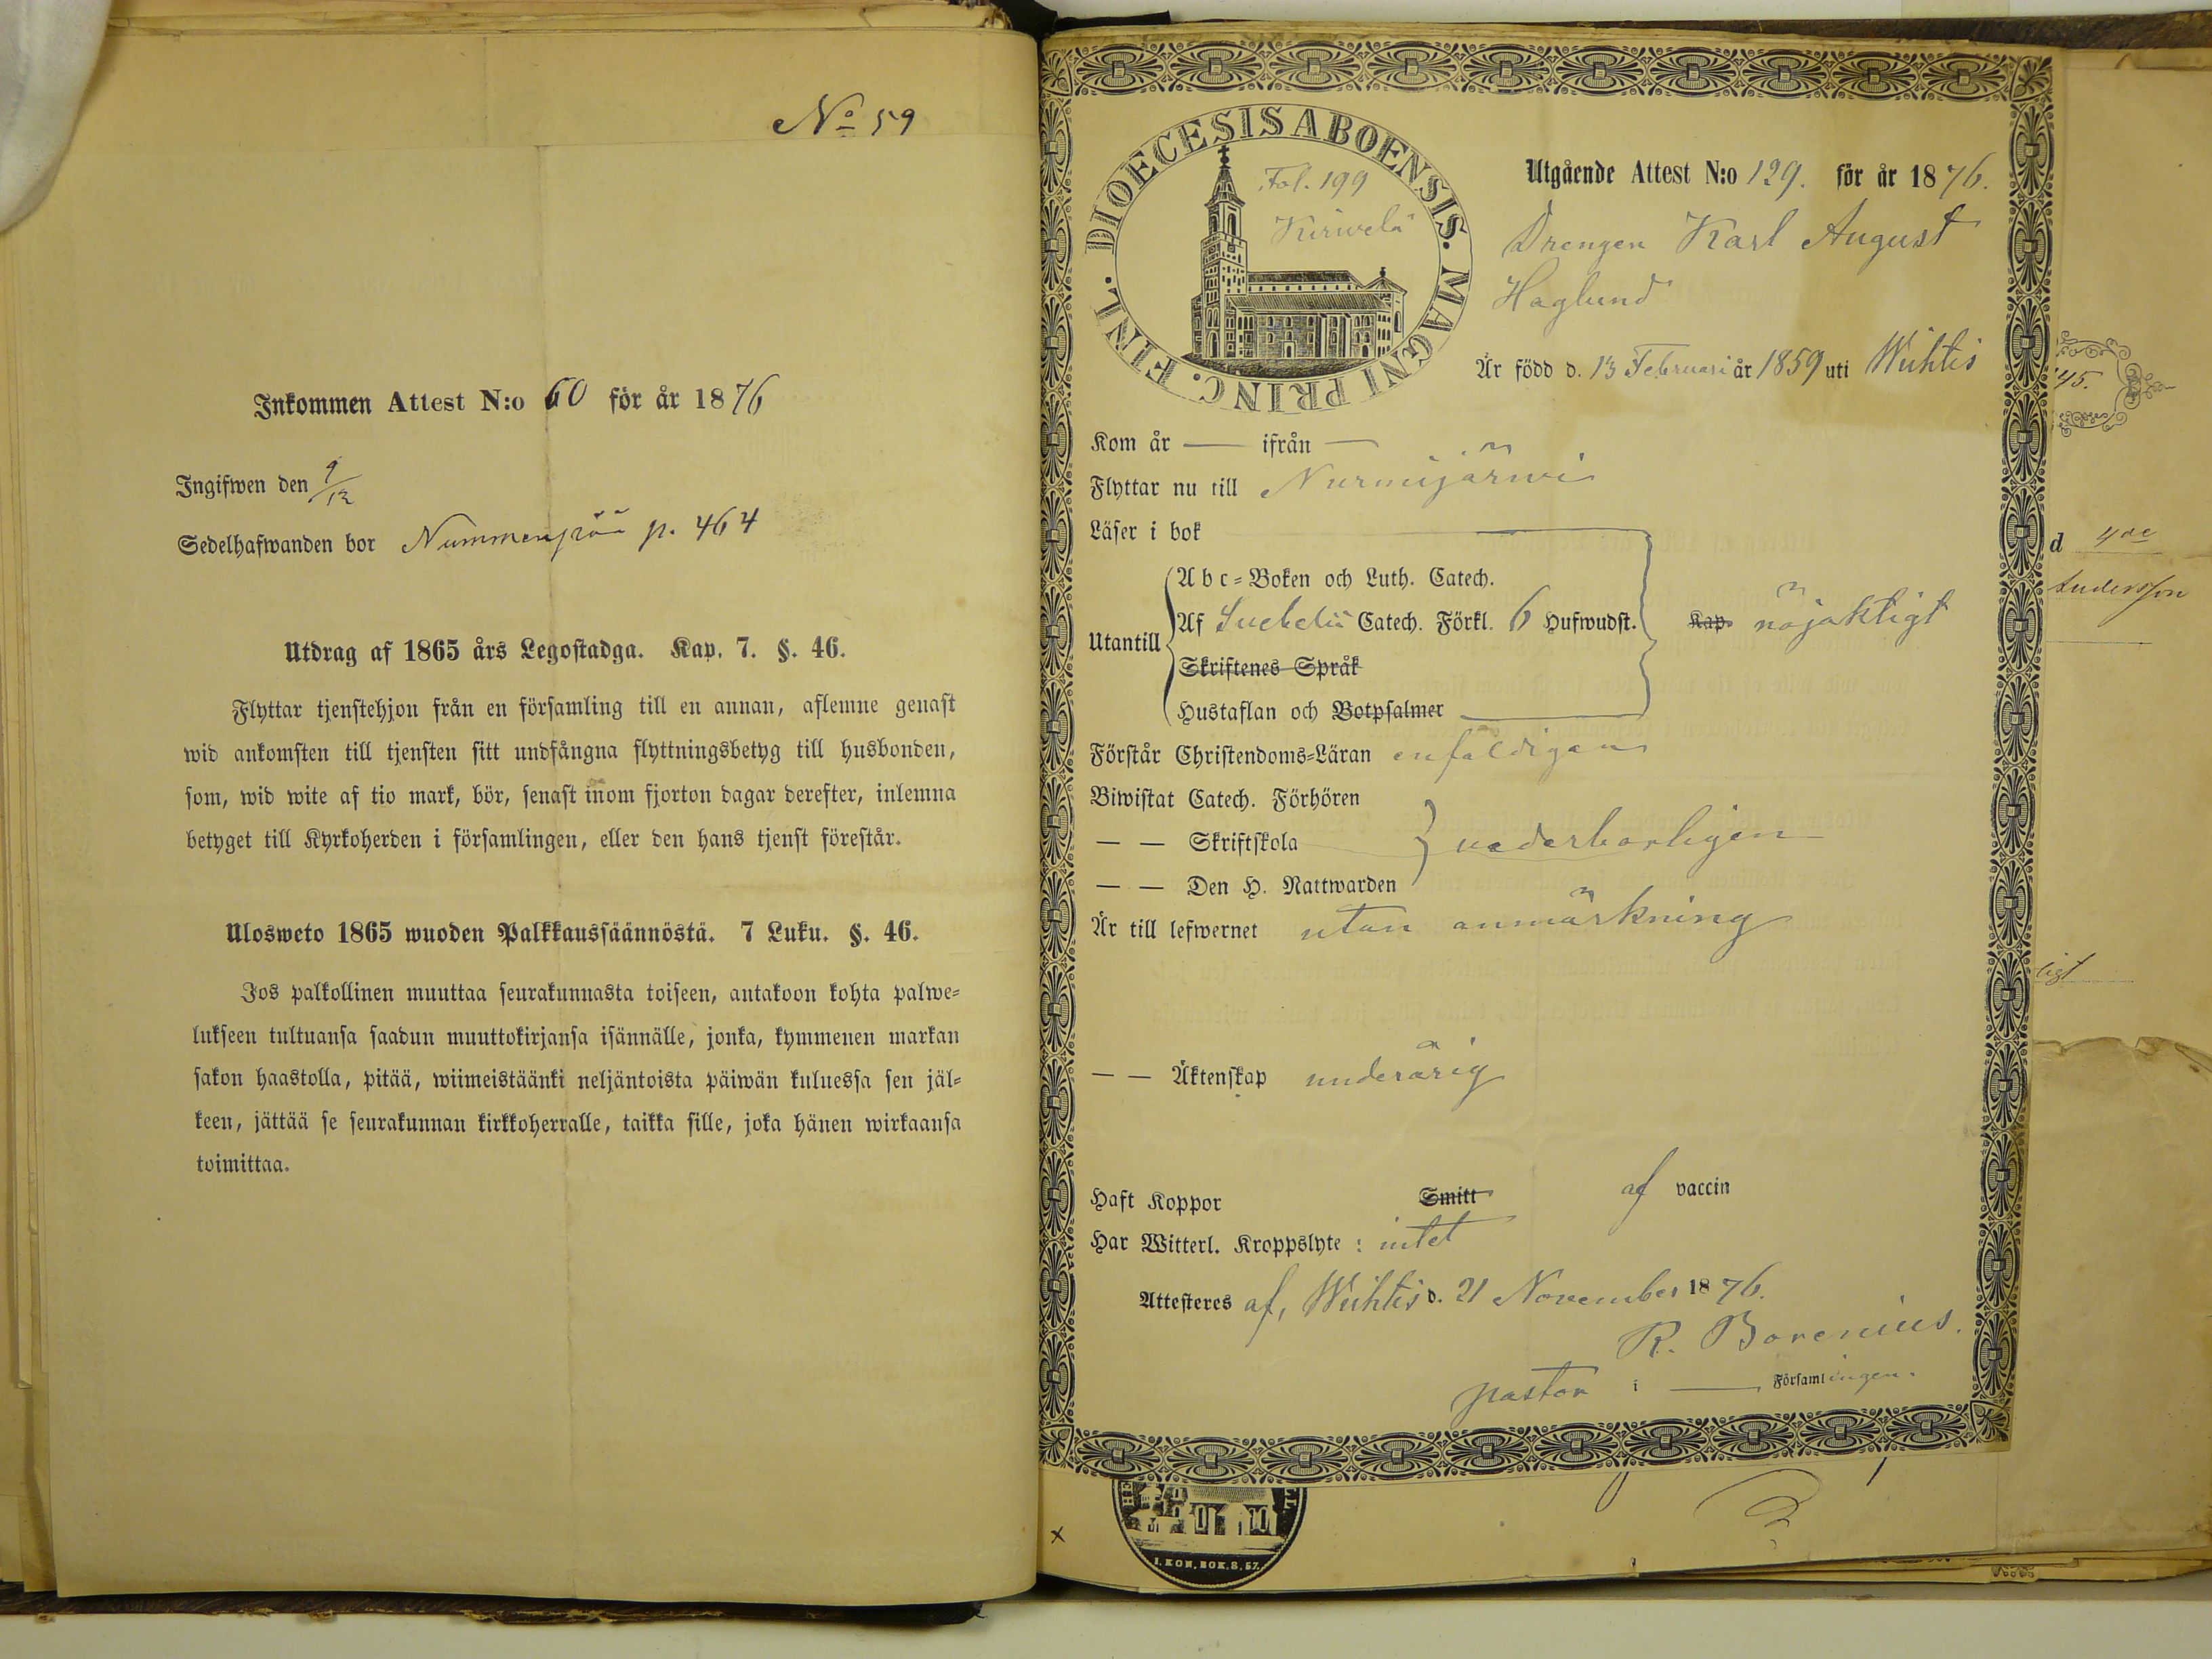 No 59
Inkommen Attest N:o 60 för år 1876
Ingifwen den 9/12
Sedelhafwanden bor Nummenpää p. 464
Utdrag af 1865 års Legostadga. Kap. 7. §. 46.
Flyttar tjenstehjon från en församling till en annan, aflemne genast
wid ankomsten till tjensten sitt undfångna flyttningsbetyg till husbonden,
som, wid wite af tio mark, bör, senast inom fjorton dagar derefter, inlemna
betyget till Kyrkoherden i församlingen, eller den hans tjenst förestår.
Ulosweto 1865 wuoden Palkkaussäännöstä. 7 Luku. §. 46.
Jos palkollinen muuttaa seurakunnasta toiseen, antakoon kohta palwe=
lukseen tultuansa saadun muuttokirjansa isännälle, jonka, kymmenen markan
sakon haastolla, pitää, wiimeistäänki neljäntoista päiwän kuluessa sen jäl=
keen, jättää se seurakunnan kirkkoherralle, taikka sille, joka hänen wirkaansa
toimittaa.
DIOECESIS ABOENSIS. MAGNI PRINC. FINL.
Fol. 199
Kirwelä
Utgående Attest N:o 129. för år 1876.
Drengen Karl August
Haglund
Är född d. 13 Februari år 1859 uti Wichtis
Kom år — ifrån —
Flyttar nu till Nurmijärwi
Läser i bok
Utantill
Abc=Boken och Luth. Catech.
Af Svebelii Catech. Förkl. 6 Hufwudst. Kap. nöjaktigt
Skriftenes Språk
Hustaflan och Botpsalmer
Förstår Christendoms=Läran enfaldigen
Biwistat Catech. Förhören
— — Skriftskola vederborligen
— — Den H. Nattwarden
Är till lefwernet utan anmärkning
— — Äktenskap underårig
Haft Koppor Smitt af vaccin
Har Witterl. Kroppslyte: intet
Attesteres af, Wichtis d. 21 November 1876.
R. Borenius.
pastor i — Församlingen.
I. KON. BOK. 8. 57.
x
45.
d
Andersson
ligt